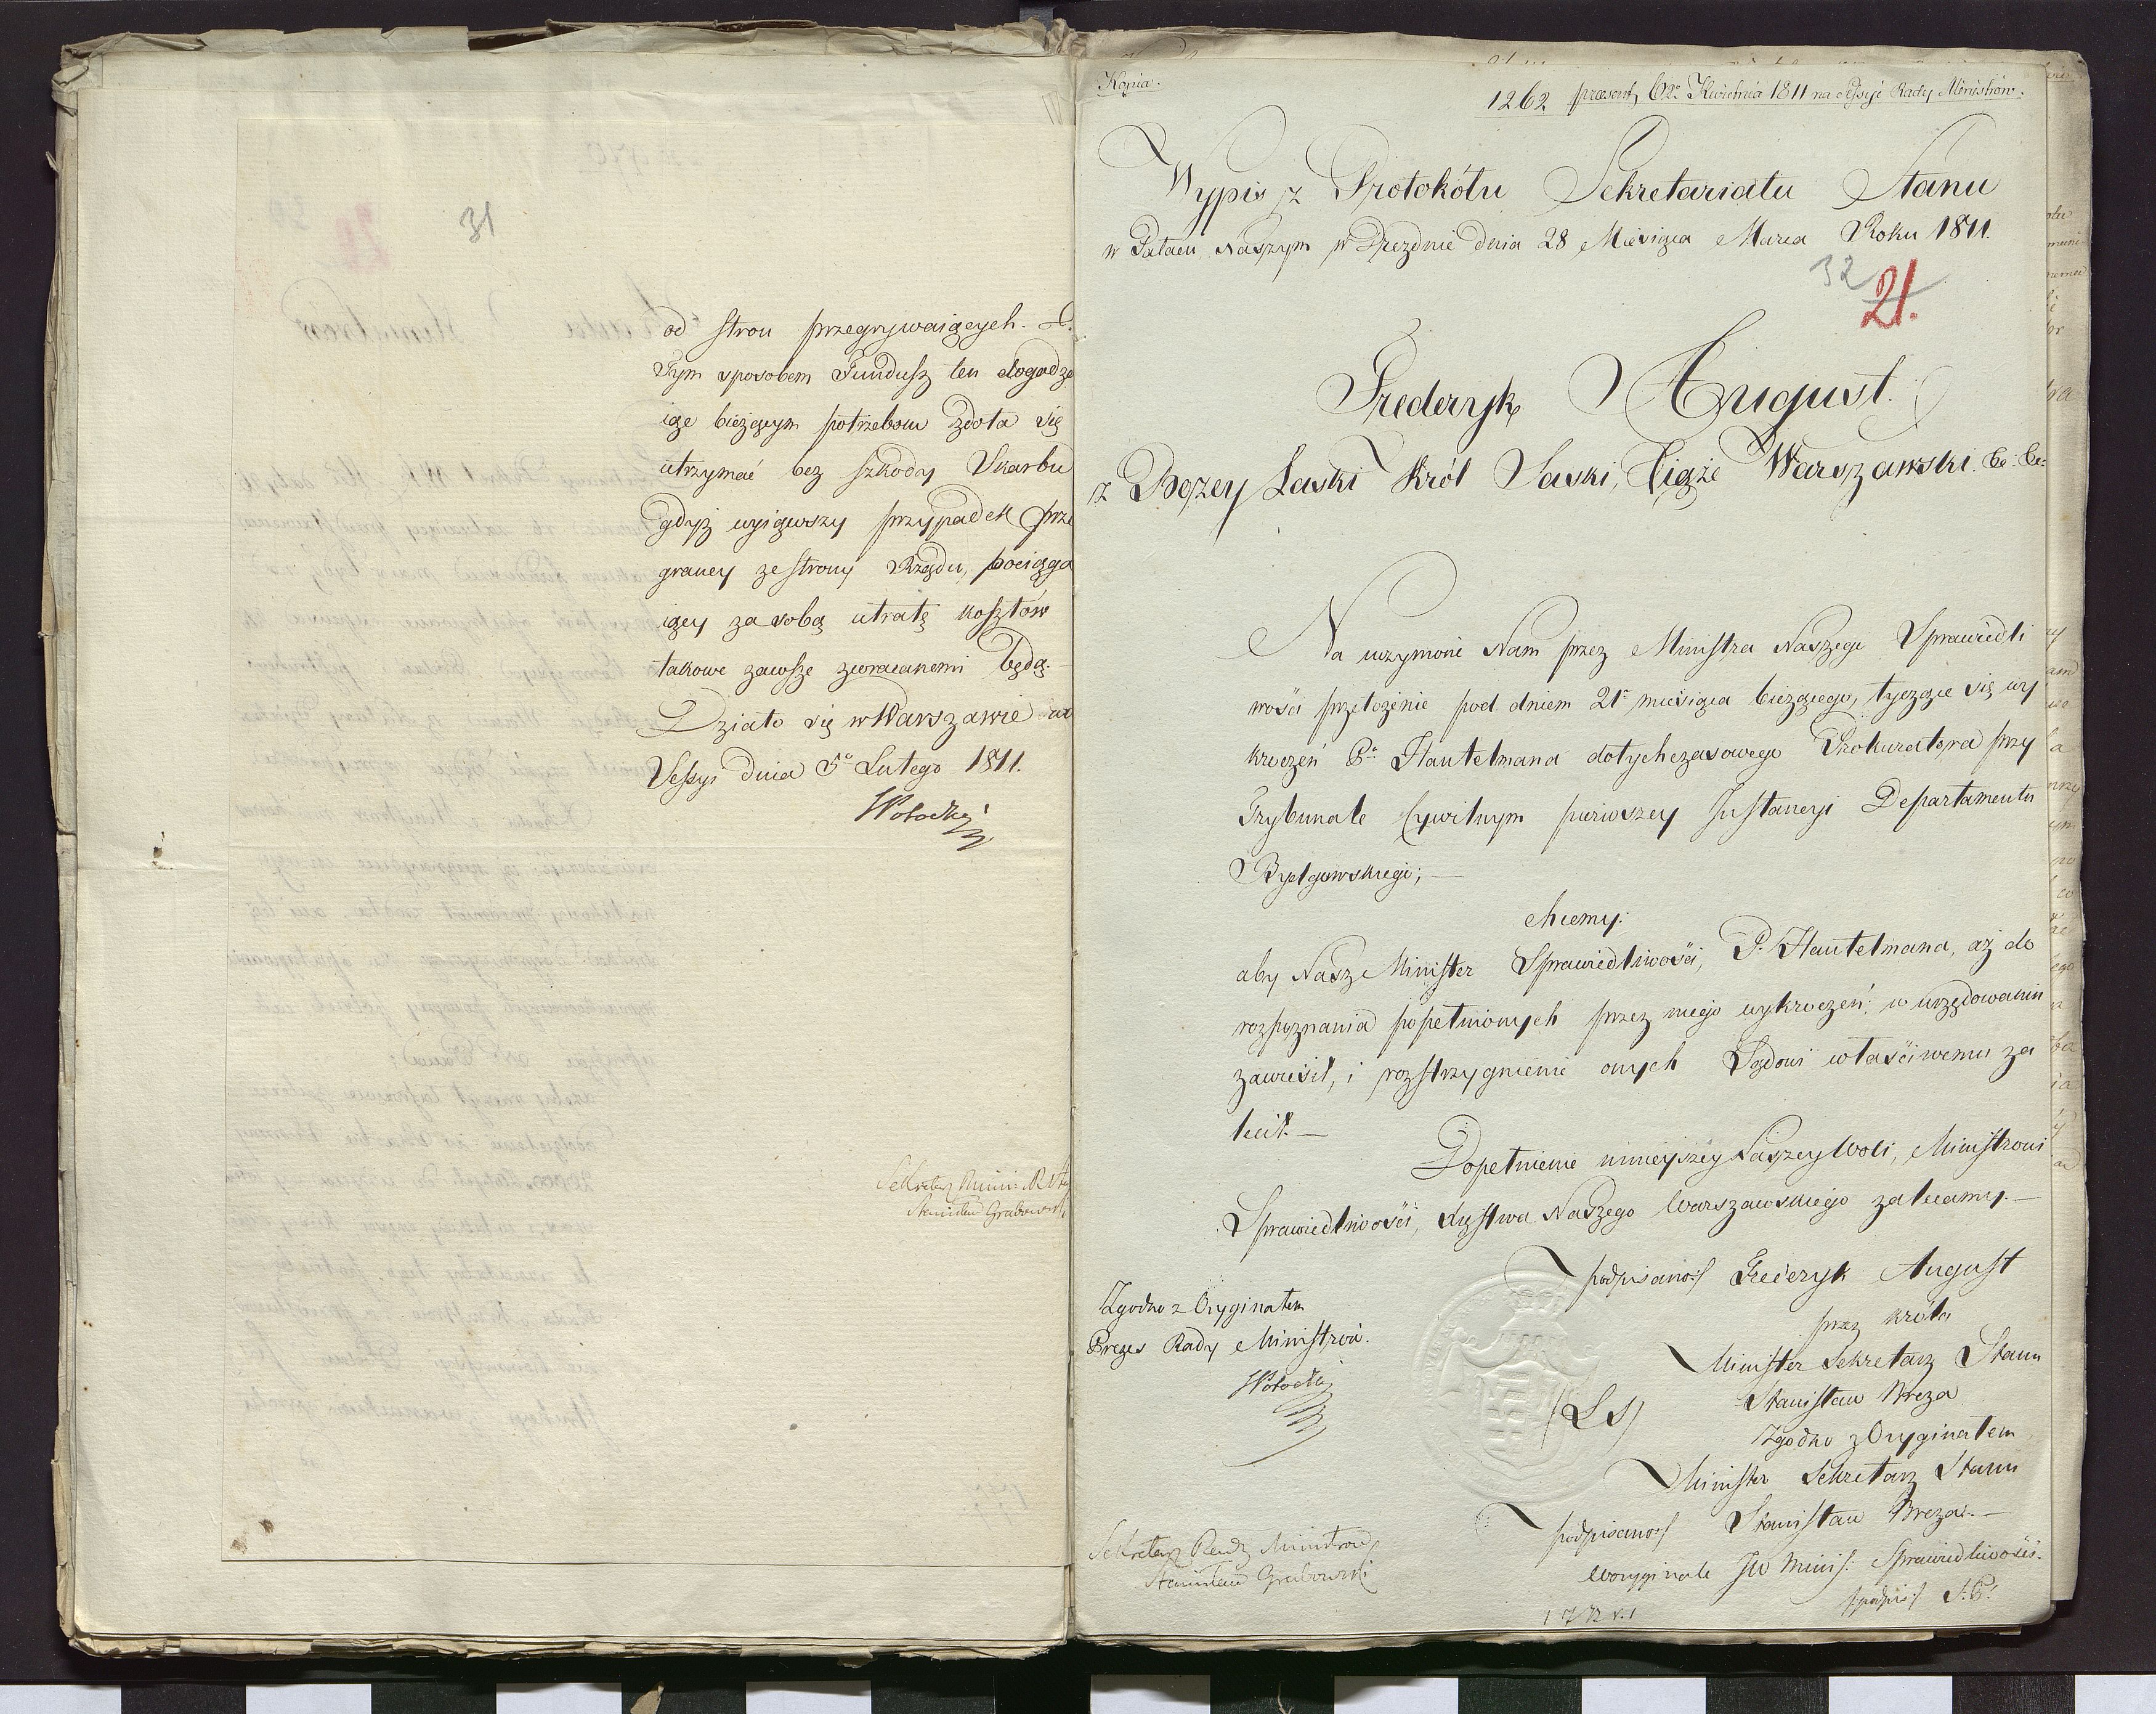 31
od stron przegrywaiących.
Tym sposobem Fundusz ten dogadza
iąc bieżącym potrzebom zdoła się
utrzymać bez szkody Skarbu
gdyż wyiąwszy przypadek prze
graney ze strony Rządu, pociąga
iący za sobą utratę kosztów
takowe zawsze zwracanemi będą.
Działo się w Warszawie na
Sessyi dnia 5o Lutego 1811.
Sekretarz
Stanisław Grabowski
Kopia.
1262 praesent, 62o Kwietnia 1811 na Sessyi Rady Ministrów.
Wypis z Protokółu Sekretariatu Stanu
w Pałacu Naszym w Dreznie dnia 28 Miesiąca Marca Roku 1811
32
21.
Frederyk August.
z Bożey Łaski Król Saski, Xiąże Warszawski. &c. &c.
Na uczynione Nam przez Ministra Naszego Sprawiedli
wości przełożenie pod dniem 21o miesiąca bieżącego, tyczące się wy
kroczeń Po Hautelmana dotychczasowego Prokuratora przy
Trybunale Cywilnym pierwszey Instancyi Departamentu
Bydgowskiego; —
chcemy:
aby Nasz Minister Sprawiedliwości, P. Hautelmana, aż do
rozpoznania popełnionych przez niego wykroczeń; w urzędowaniu
zawiesił, i rozstrzygnienie onych Sądowi właściwemu za
lecił. —
Dopełnienie ninieyszey Naszey Woli, Ministrowi
Sprawiedliwości, Xięstwa Naszego Warszawskiego zalecamy. —
podpisano:/ Frederyk August
przez króla
Minister Sekretarz Stanu
(L S) Stanisław Breza
Zgodno z Oryginałem
Minister Sekretarz Stanu
podpisano:/ Stanisław Breza. —
Zgodno z Oryginałem
Prezes Rady Ministrów.
w oryginale JW Minis: Sprawiedliwości.
/:podpis:/
Sekretarz Rady Ministrow,
Stanisław Grabowski